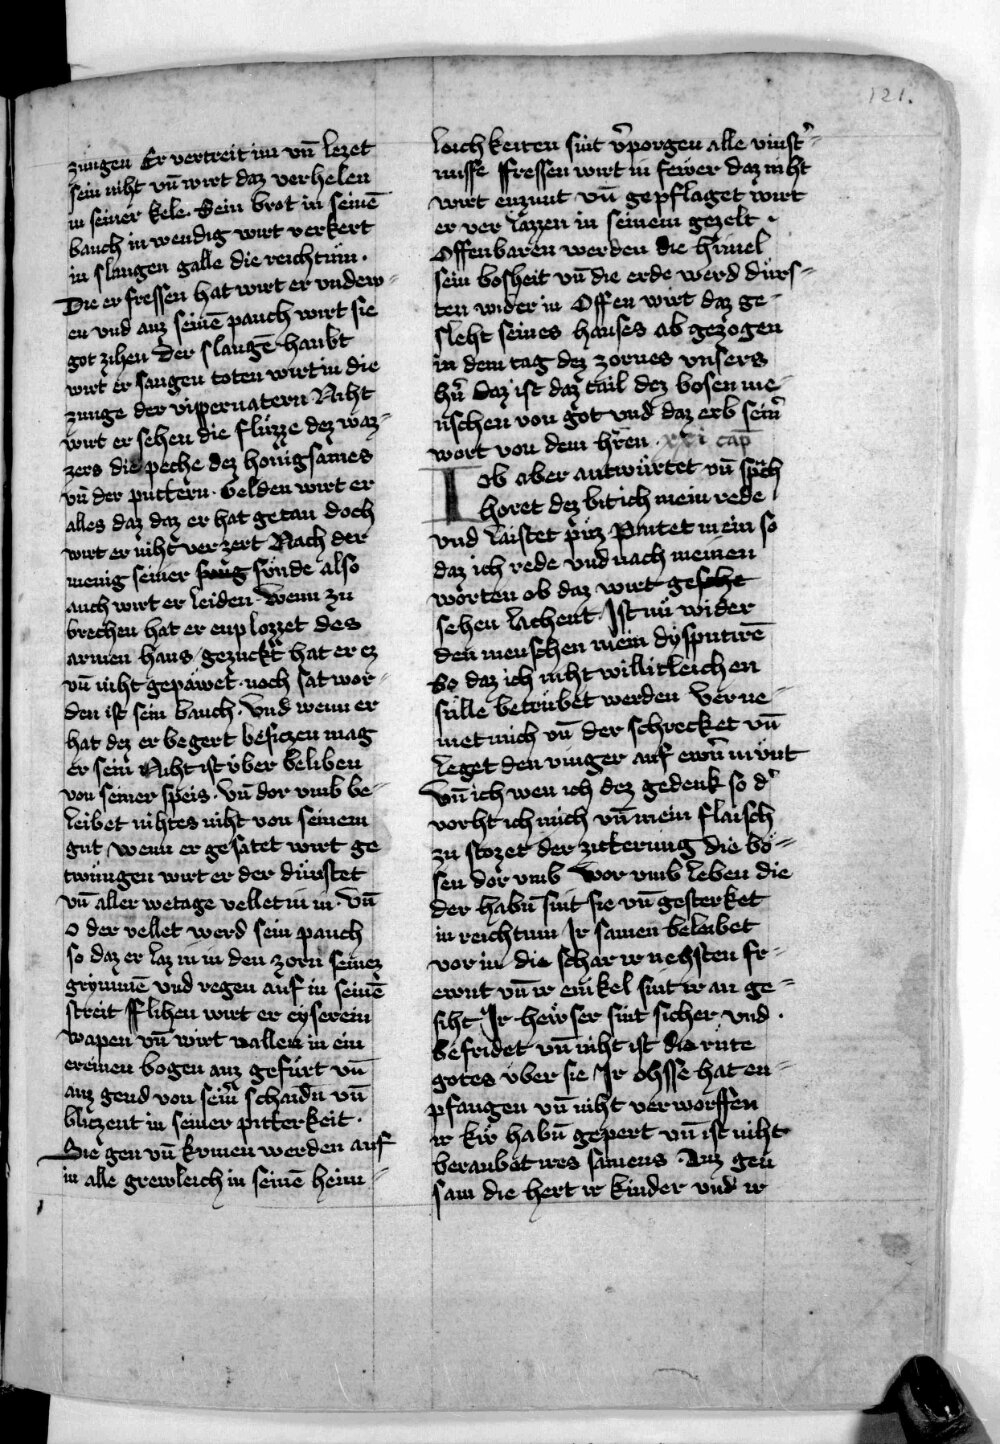 121.
zungen Er vertreit im vn̄ lezet
sein niht vn̄ wirt daz verhelen
in seiner kele. Sein brot in seinē
bauch in wendig wirt verkert
in slangen galle die reichtum.
Die er fressen hat wirt er vndew-
en vnd auz seinē pauch wirt sie
got zihen Der slangē haubt
wirt er saugen toten wirt in die
zunge der vippernatern Niht
wirt er sehen die flüzze dez waz-
zers die peche dez honigsames
vn̄ der puttern. Gelden wirt er
alles daz daz er hat getan doch
wirt er niht verzert Nach der
menig seiner sünde also
auch wirt er leiden. Wenn zu
brechen hat er enplozzet des
armen haus gezuckt hat er ez
vn̄ niht gepawet. noch sat wor-
den ist sein bauch. Vnd wenn er
hat dez er begert besiczen mag
er sein Niht ist über beliben
von seiner speis. vn̄ dor vmb be-
leibet nihtes niht von seinem
gut wenn er gesatet wirt ge
twungen wirt er der dürstet
vn̄ aller wetage vellet in in. vn̄
o der vellet werd sein pauch
so daz er laz in in den zorn seinez
grymmē vnd regen auf in seinē
streit Flihen wirt er eyserein
wapen vn̄ wirt vallen in ein
ereinen bogen auz gefürt vn̄
auz gend von seiner schaidn vn̄
bliczent in seiner pitterkeit.
Sie gen vn̄ kumen werden auf
in alle grewleich in seinē heim-
leichkeiten sint v̉porgen alle vinst̉-
nusse Fressen wirt in fewer daz niht
wirt enzunt vn̄ gepflaget wirt
er verlazzen in seinem gezelt.
Offenbaren werden die himel
sein bosheit vn̄ die erde werd dürs-
ten wider in Offen wirt daz ge-
sleht seines hauses ab gezogen
in dem tag dez zornes vnsers
hr̄n Daz ist daz tail dez bosen me-
nschen von got vnd daz erb sein̉
wort von dem hr̄en. xxi cap̄
Iob aber antwürtet vn̄ sp̄ch
horet dez bit ich mein rede
vnd laistet p̉iz Pawtet mein so
daz ich rede vnd nach meinen
worten ob daz wirt geseht
sehen lachent. Ist nu wider
den menschen mein dysputirē
So daz ich niht willicleichen
sülle betrübet werden Verne-
met mich vn̄ der schrecket vn̄
leget den vinger auf ewr̄n munt
Vn̄ ich wen ich dez gedenk so d̉
vorht ich mich vn̄ mein flaisch
zu stozet der zitterung die bo-
sen dor vmb Wor vmb leben die
der habn̄ sint sie vn̄ gesterket
in reichtum Ir samen beleibet
vor in die schar ir nehsten fr-
ewnt vn̄ ir enikel sint ir an ge-
siht Ir hewser sint sicher vnd.
befridet vn̄ niht ist die rute
gotes über sie Ir ohsse hat en-
pfangen vn̄ niht verworffen
ir kü habn̄ gepert vn̄ ist niht
beraubet ires samens. Auz gen
sam die hert ir kinder vnd ir